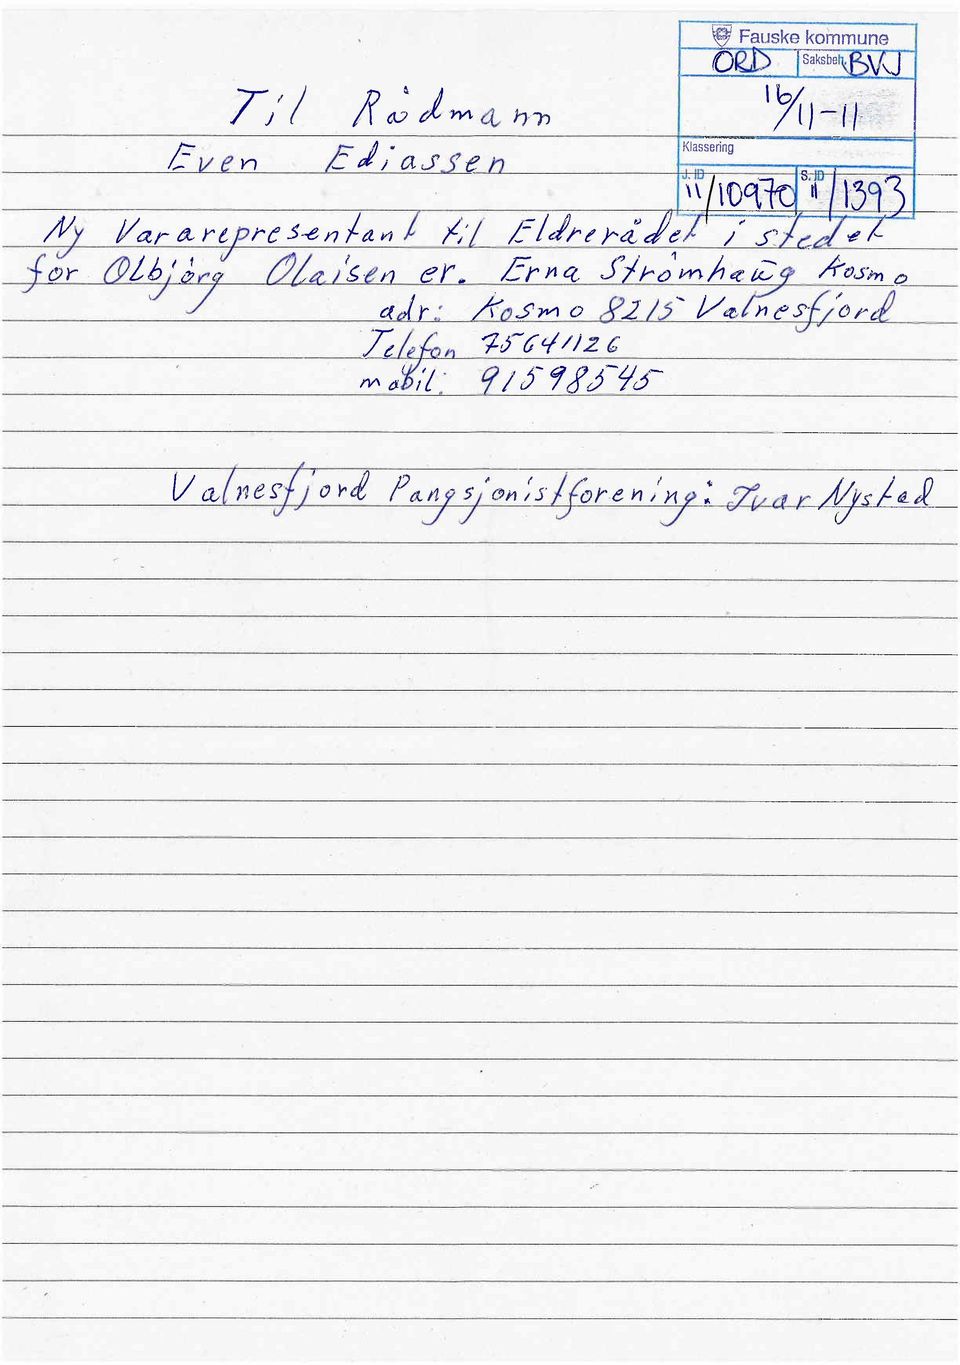 Fauske kommune
ORD Saksbeh. BVJ
16/11-11
Klassering
J. ID S. ID
11/10970 11/1393
Til Rådmann
Even Ediassen
Ny Vararepresentant til Eldrerådet i stedet
for Olbjörg Olaisen er. Erna Strömhaug Kosmo
adr: Kosmo 8215 Valnesfjord
Telefon 75641126
mobil: 91598545
Valnesfjord Pangsjonistforening: Ivar Nystad